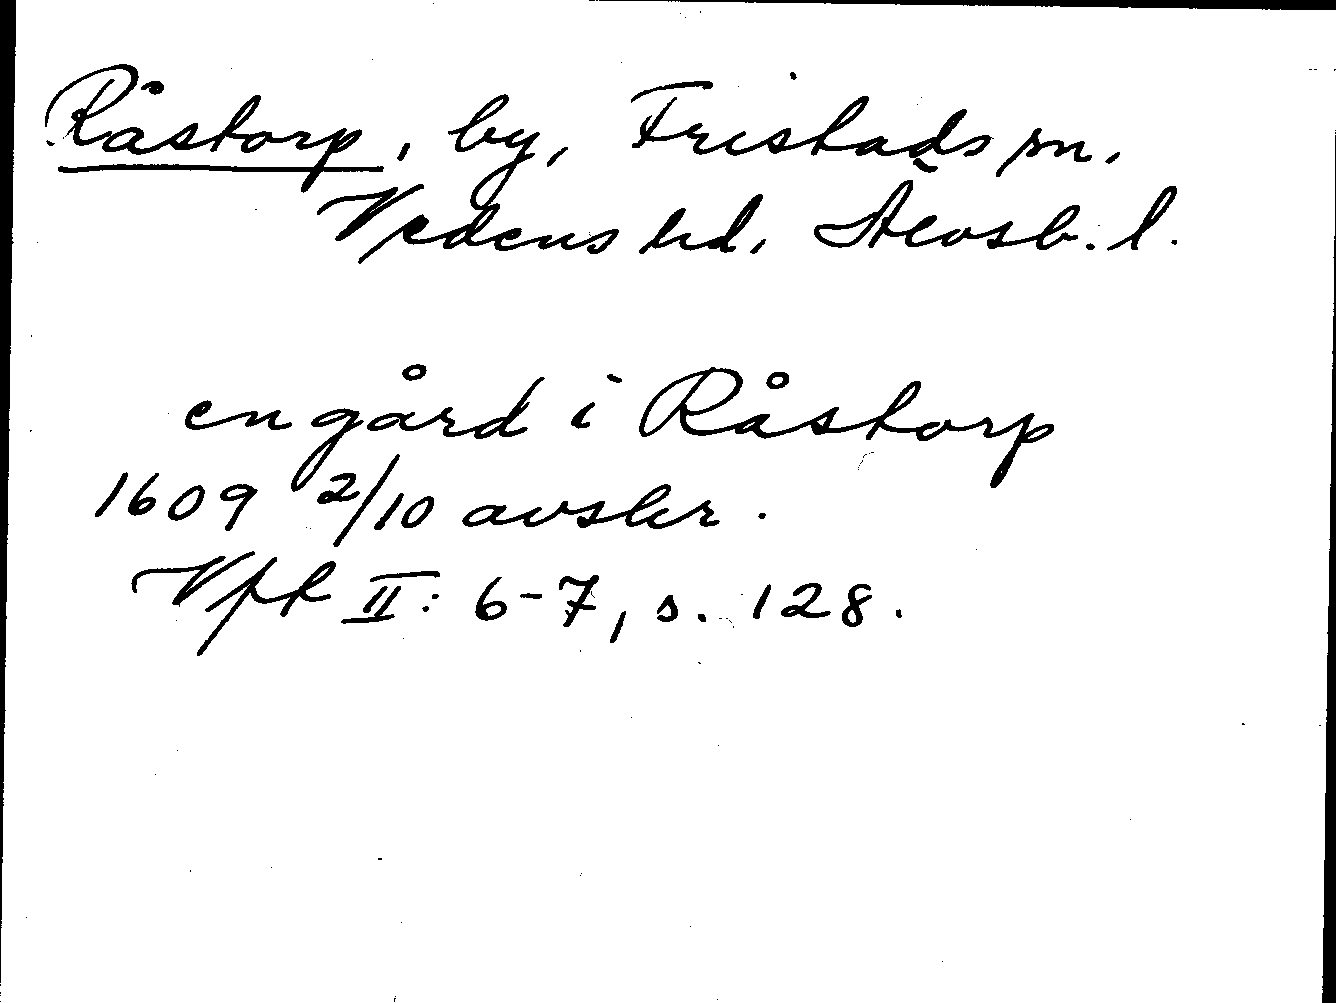 Råstorp, by, Fristads sn,
Vedens hd, Älvsb. l.
en gård i Råstorp
1609 2/10 avskr.
Vfk II: 6-7, s. 128.